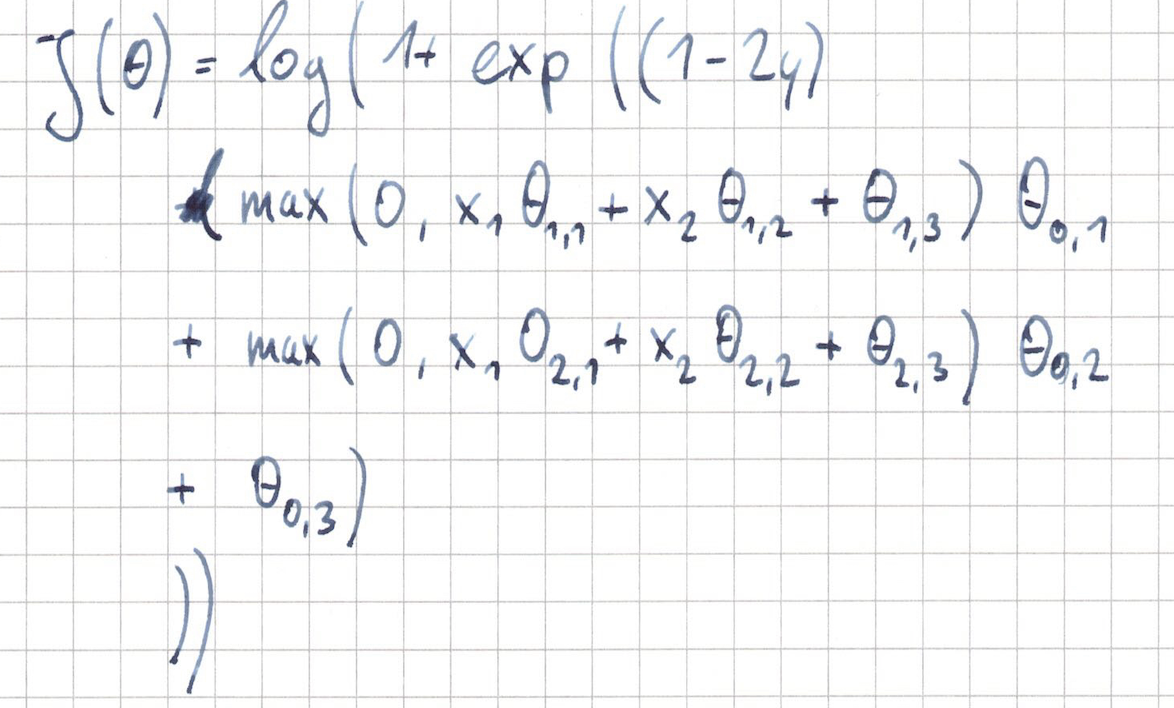 J(θ) = log(1+ exp((1-2y)
( max(0, x₁θ₁,₁ + x₂θ₁,₂ + θ₁,₃) θ₀,₁
+ max(0, x₁θ₂,₁ + x₂θ₂,₂ + θ₂,₃) θ₀,₂
+ θ₀,₃)
))